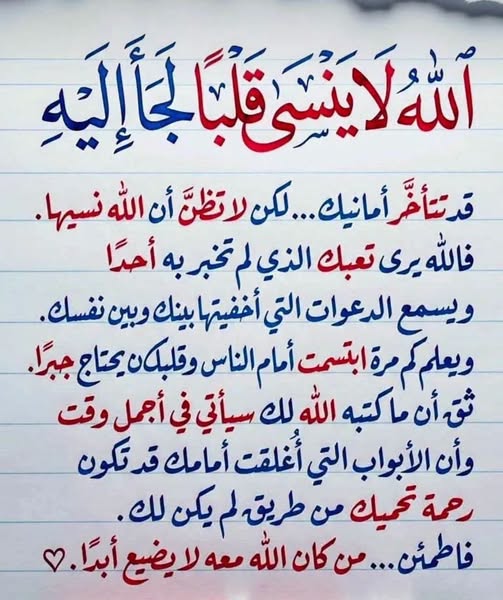 ٱللهُ لَا يَنْسَى قَلْبًا لَجَأَ إِلَيْهِ
قد تتأخَّر أمانيك... لكن لا تظنَّ أن الله نسيها.
فالله يرى تعبك الذي لم تخبر به أحدًا
ويسمع الدعوات التي أخفيتها بينك وبين نفسك.
ويعلم كم مرة ابتسمت أمام الناس وقلبك ن يحتاج جبرًا.
ثق أن ما كتبه الله لك سيأتي في أجمل وقت
وأن الأبواب التي أُغلقت أمامك قد تكون
رحمة تحميك من طريق لم يكن لك.
فاطمئن... من كان الله معه لا يضيع أبدًا. ♡